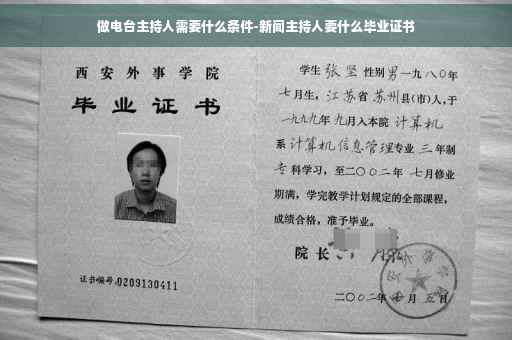 做电台主持人需要什么条件-新闻主持人要什么毕业证书
西安外事学院
毕业证书
证书编号:0209130411
学生张坚性别男一九八〇年
七月生，江苏省苏州县(市)人,于
一九九九年九月入本院计算机
系计算机信息管理专业三年制
专科学习，至二〇〇二年七月修业
期满，学完教学计划规定的全部课程，
成绩合格，准予毕业。
院长
二〇〇二年 月五日